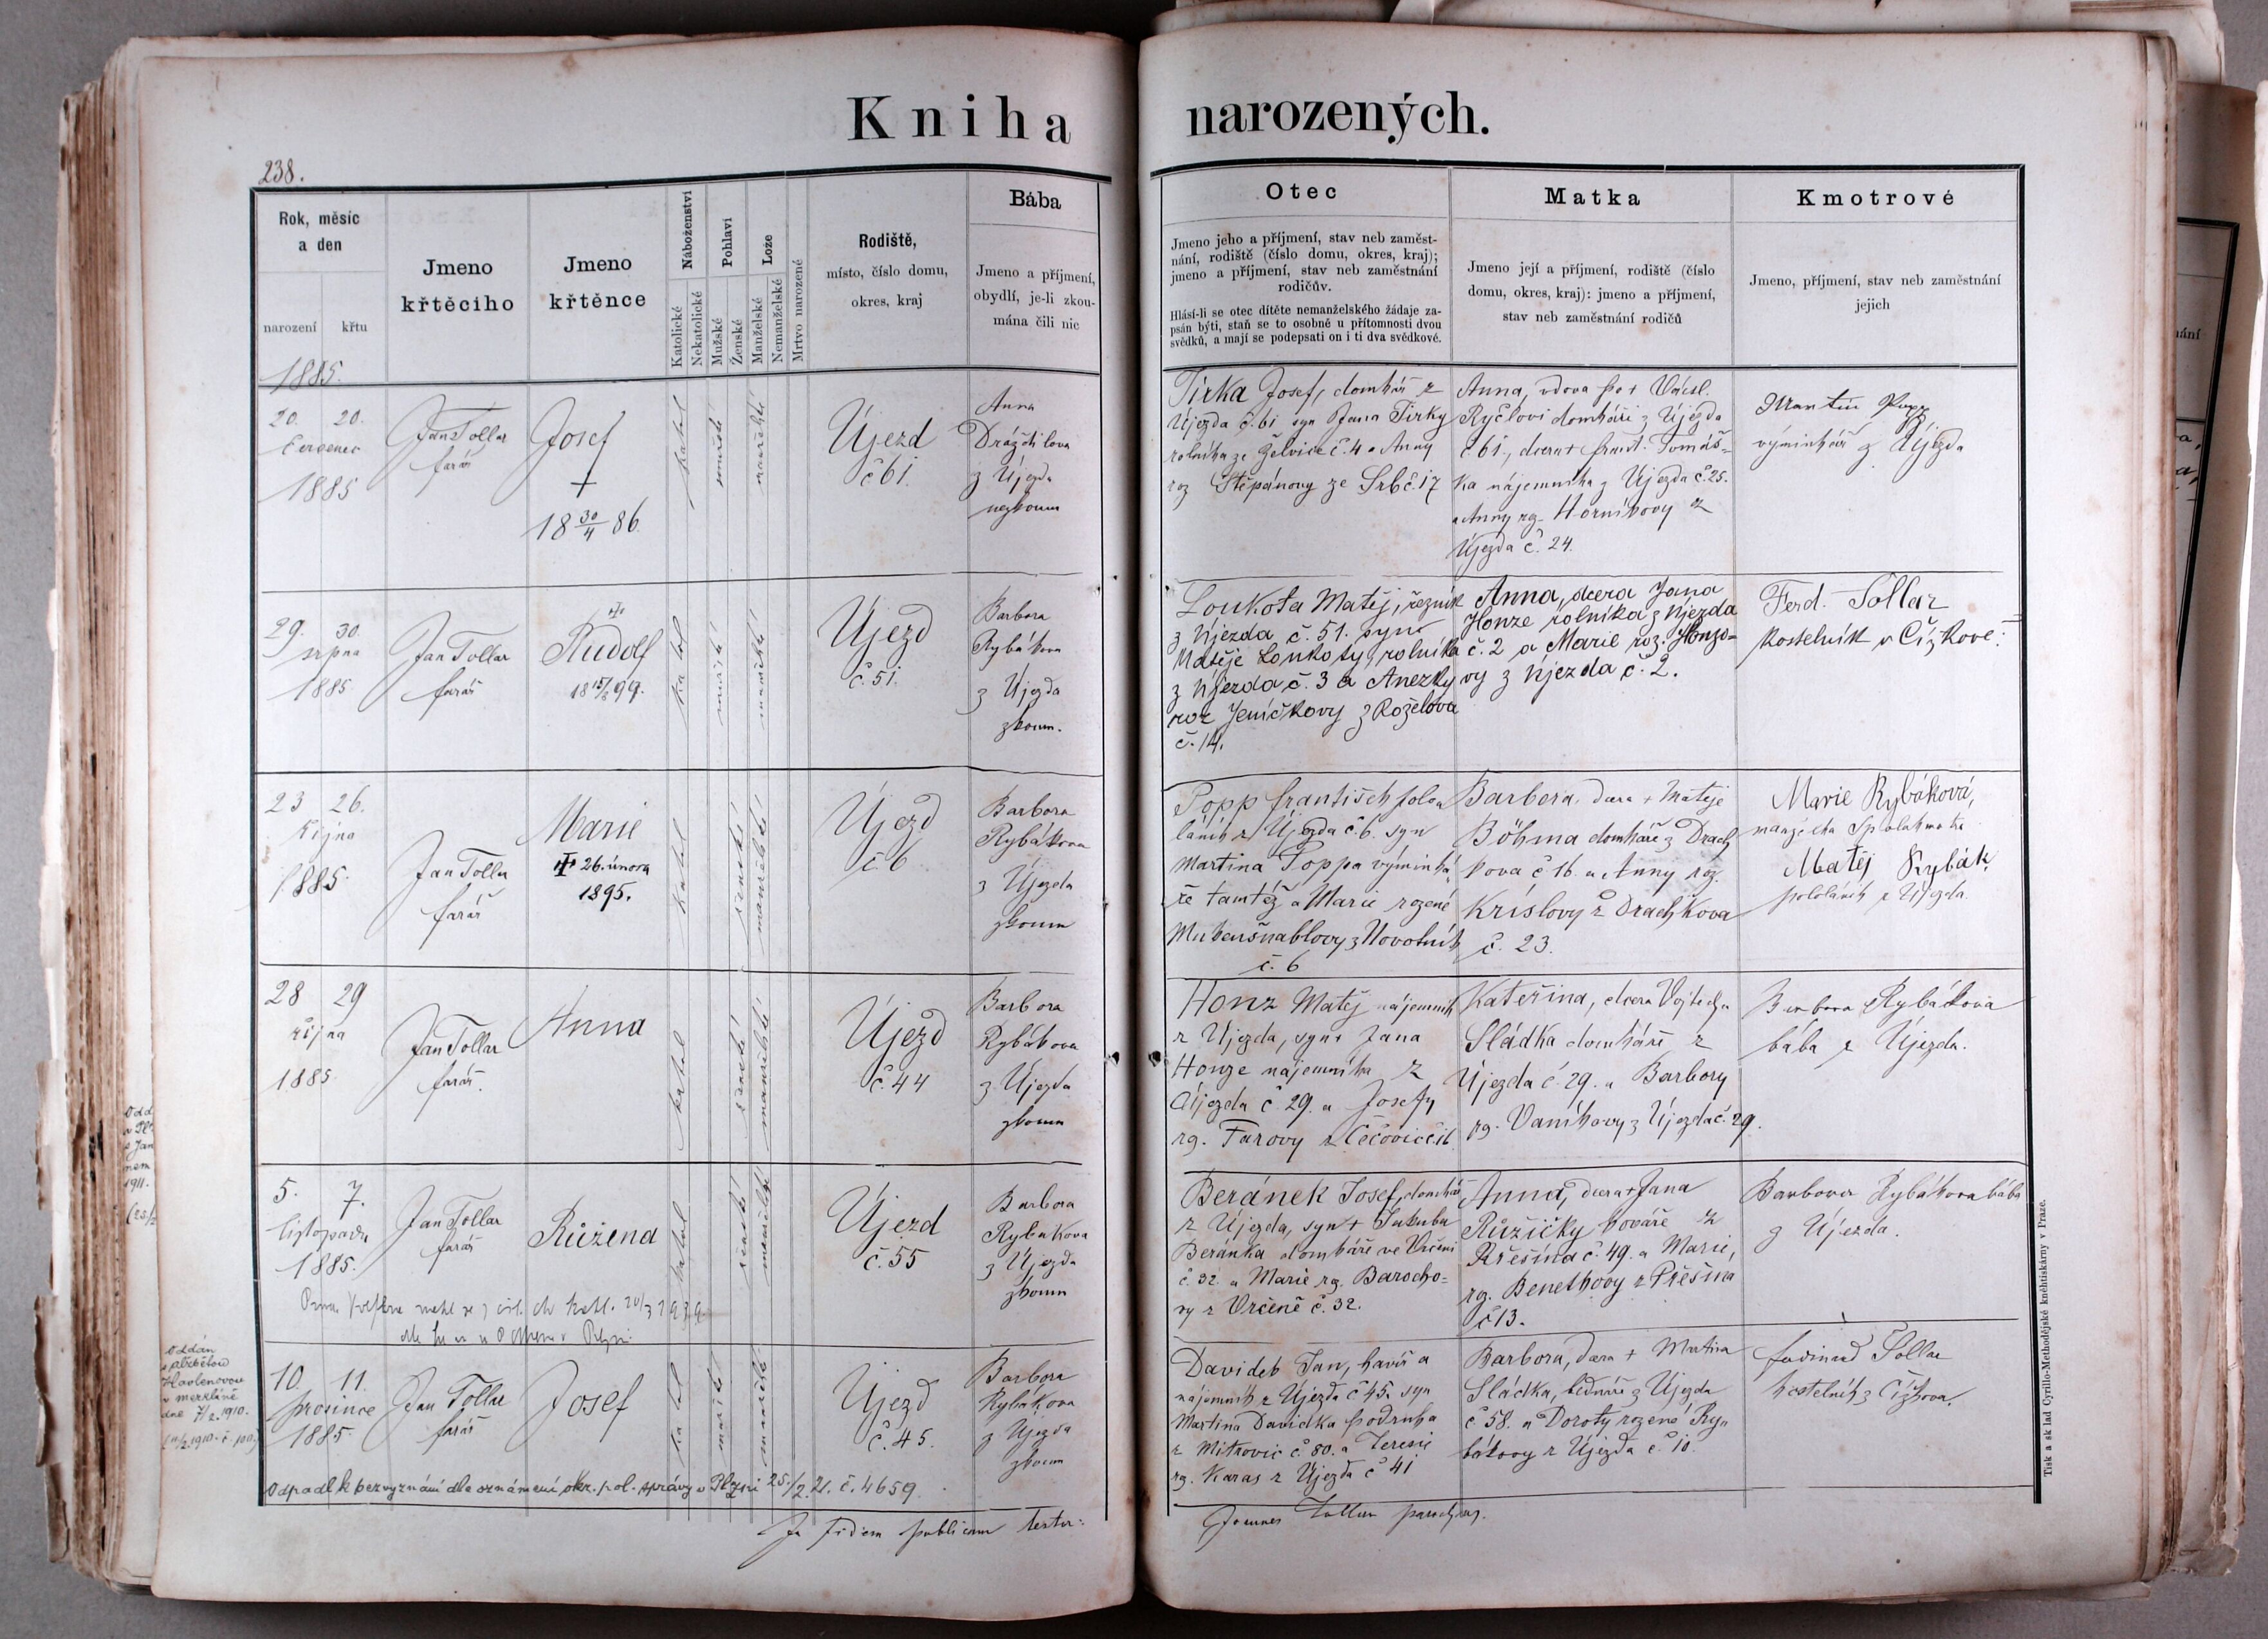 Kniha narozených.
238.
Rok, měsíc
a den
narození křtu
Jmeno
křtěcího
Jmeno
křtěnce
Náboženství
Katolické
Nekatolické
Pohlaví
Mužské
Ženské
Lože
Manželské
Nemanželské
Mrtvo narozené
Rodiště,
místo, číslo domu,
okres, kraj
Bába
Jmeno a příjmení,
obydlí, je-li zkou-
mána čili nic
Otec
Jmeno jeho a příjmení, stav neb zaměst-
nání, rodiště (číslo domu, okres, kraj);
jmeno a příjmení, stav neb zaměstnání
rodičův.
Hlásí-li se otec dítěte nemanželského žádaje za-
psán býti, staň se to osobné u přítomnosti dvou
svědků, a mají se podepsati on i ti dva svědkové.
Matka
Jmeno její a příjmení, rodiště (číslo
domu, okres, kraj): jmeno a příjmení,
stav neb zaměstnání rodičů
Kmotrové
Jmeno, příjmení, stav neb zaměstnání
jejich
1885.
20. 20.
Červenec
1885
Jan Tollar
farář
Josef
+
18 30/4 86.
katol
mužské
manželské
Újezd
č 61.
Anna
Dráždilova
z Újezda
nezkoum
Tirka Josef, domkář z
Újezda č. 61 syn Jana Tirky
rolníka ze Želvice č. 4 a Anny
roz Štěpánovy ze Srb č. 17
Anna, vdova po + Václ.
Ryčlovi domkáři z Újezda
č 61., dcera + Frant. Tomáš-
ka nájemníka z Újezda č. 25.
a Anny rz. Horníkovy z
Újezda č. 24.
Martin Popp
výminkář z Újezda
29. 30.
srpna
1885
Jan Tollar
farář
Rudolf
18 15/2 99.
katol
mužské
manželské
Újezd
č. 51.
Barbora
Rybákova
z Újezda
zkoum.
Loukota Matěj, řezník
z Újezda č. 51. syn
Matěje Loukoty, rolníka
z Újezda č. 3 a Anežky
roz Jeníčkovy z Roželova
č. 14.
Anna, dcera Jana
Honze rolníka z Újezda
č. 2 a Marie roz. Honzo-
vy z Újezda č. 2.
Ferd. Tollar
kostelník v Čížkově.
23 26.
října
1885
Jan Tollar
farář
Marie
26. února
1895.
katol
ženské
manželské
Újezd
č 6
Barbora
Rybákova
z Újezda
zkoum
Popp František polo
láník z Újezda č. 6. syn
Martina Poppa výminká-
ře tamtéž a Marie rozené
z Novotník
č. 6
Barbora, dcera + Matěje
Böhma domkáře z Drach
kova č 16. a Anny roz.
Kríslovy z Drachkova
č. 23.
Marie Rybáková,
manželka
Matěj Rybák,
pololáník z Újezda.
28 29
října
1885
Jan Tollar
farář.
Anna
katol
ženské
manželské
Újezd
č. 44
Barbora
Rybákova
z Újezda
zkoum
Honz Matěj nájemník
z Újezda, syn + Jana
Honze nájemníka z
Újezda č 29. a Josefy
rz. Farovy z Čečovic č 16
Kateřina, dcera Vojtěcha
Sládka domkáře z
Újezda č. 29. a Barbory
rz. Vaníkovy z Újezda č. 29.
Barbora Rybáková
bába z Újezda.
5. 7.
listopadu
1885.
Jan Tollar
farář
Růžena
katol
ženské
manželské
Újezd
č. 55
Barbora
Rybákova
z Újezda
zkoum
Beránek Josef, domkář
z Újezda, syn + Jakuba
Beránka domkáře ve Vrčeni
č. 32. a Marie rz. Barocho-
vy z Vrčeně č. 32.
Anna, dcera + Jana
Růžičky kováře z
Přešína č. 49. a Marie,
rz. Benethovy z Přešína
č 13.
Barbora Rybákova bába
z Újezda.
10. 11.
prosince
1885.
Jan Tollar
farář
Josef
katol
mužské
manželské
Újezd
č. 45.
Barbora
Rybákova
z Újezda
zkoum
Davídek Jan, havíř a
nájemník z Újezda č 45. syn
Martina Davídka podruha
z Mítrovic č. 80. a Terezie
rz. Karas z Újezda č 41
Barbora, dcera + Martina
Sládka, bednáře z Újezda
č. 58. a Doroty rozené Ry-
bákovy z Újezda č. 10.
Ferdinand Tollar
kostelník z Čížkova.
Oddán
s Alžbětou
Havlenovou
v Merklíně
dne 7/2. 1910.
Odpadl k bezvyznání dle oznámení okr. pol. správy v Plzni 25./2. 21. č. 4659.
In fidem publicam testor:
Joannes Tollar parochus.
Tisk a sklad Cyrillo-Methodějské kněhtiskárny v Praze.